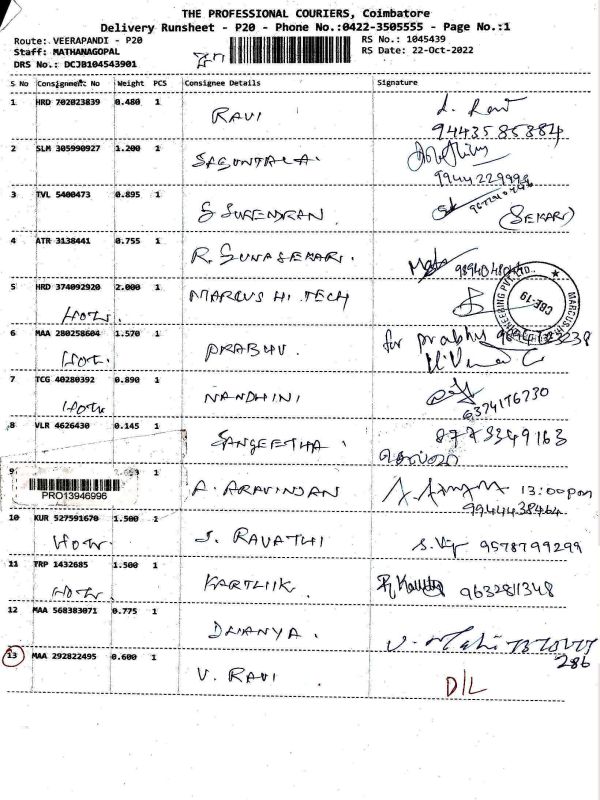 THE PROFESSIONAL COURIERS, Coimbatore
Delivery Runsheet - P20 - Phone No.:0422-3505555 - Page No.:1
Route: VEERAPANDI - P20
RS No.: 1045439
Staff: MATHANAGOPAL
RS Date: 22-Oct-2022
DRS No.: DCJB104543901
S No Consignment No Weight PCS Consignee Details Signature
1 HRD 702023839 0.480 1 RAVI
9443585384
2 SLM 305990927 1.200 1 SAGUNTALA.
9944229999
3 TVL 5400473 0.895 1 S SURENDRAN
(SEKAR)
4 ATR 3138441 0.755 1 R. GUNASEKARI.
5 HRD 374092920 2.000 1 MARCUS HI TECH
CBE-19
6 MAA 280258604 1.570 1 PRABHU. for prabhu
7 TCG 40280392 0.890 1 NANDHINI
6374176730
8 VLR 4626430 0.145 1 SANGEETHA. 8773349163
9 1 A. ARAVINDAN 13:00pm
PRO13946996
9944438464
10 KUR 527591670 1.500 1 J. RAVATHI 9578799299
11 TRP 1432685 1.500 1 KARTHIK 9632811348
12 MAA 568383071 0.775 1 DHANYA.
286
13 MAA 292822495 0.600 1 V. RAVI D/L